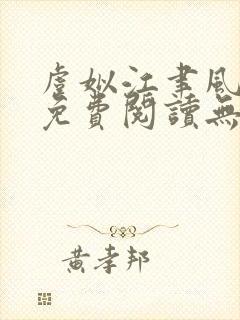 虐姒江聿風
免費閱讀無
黃孝邦